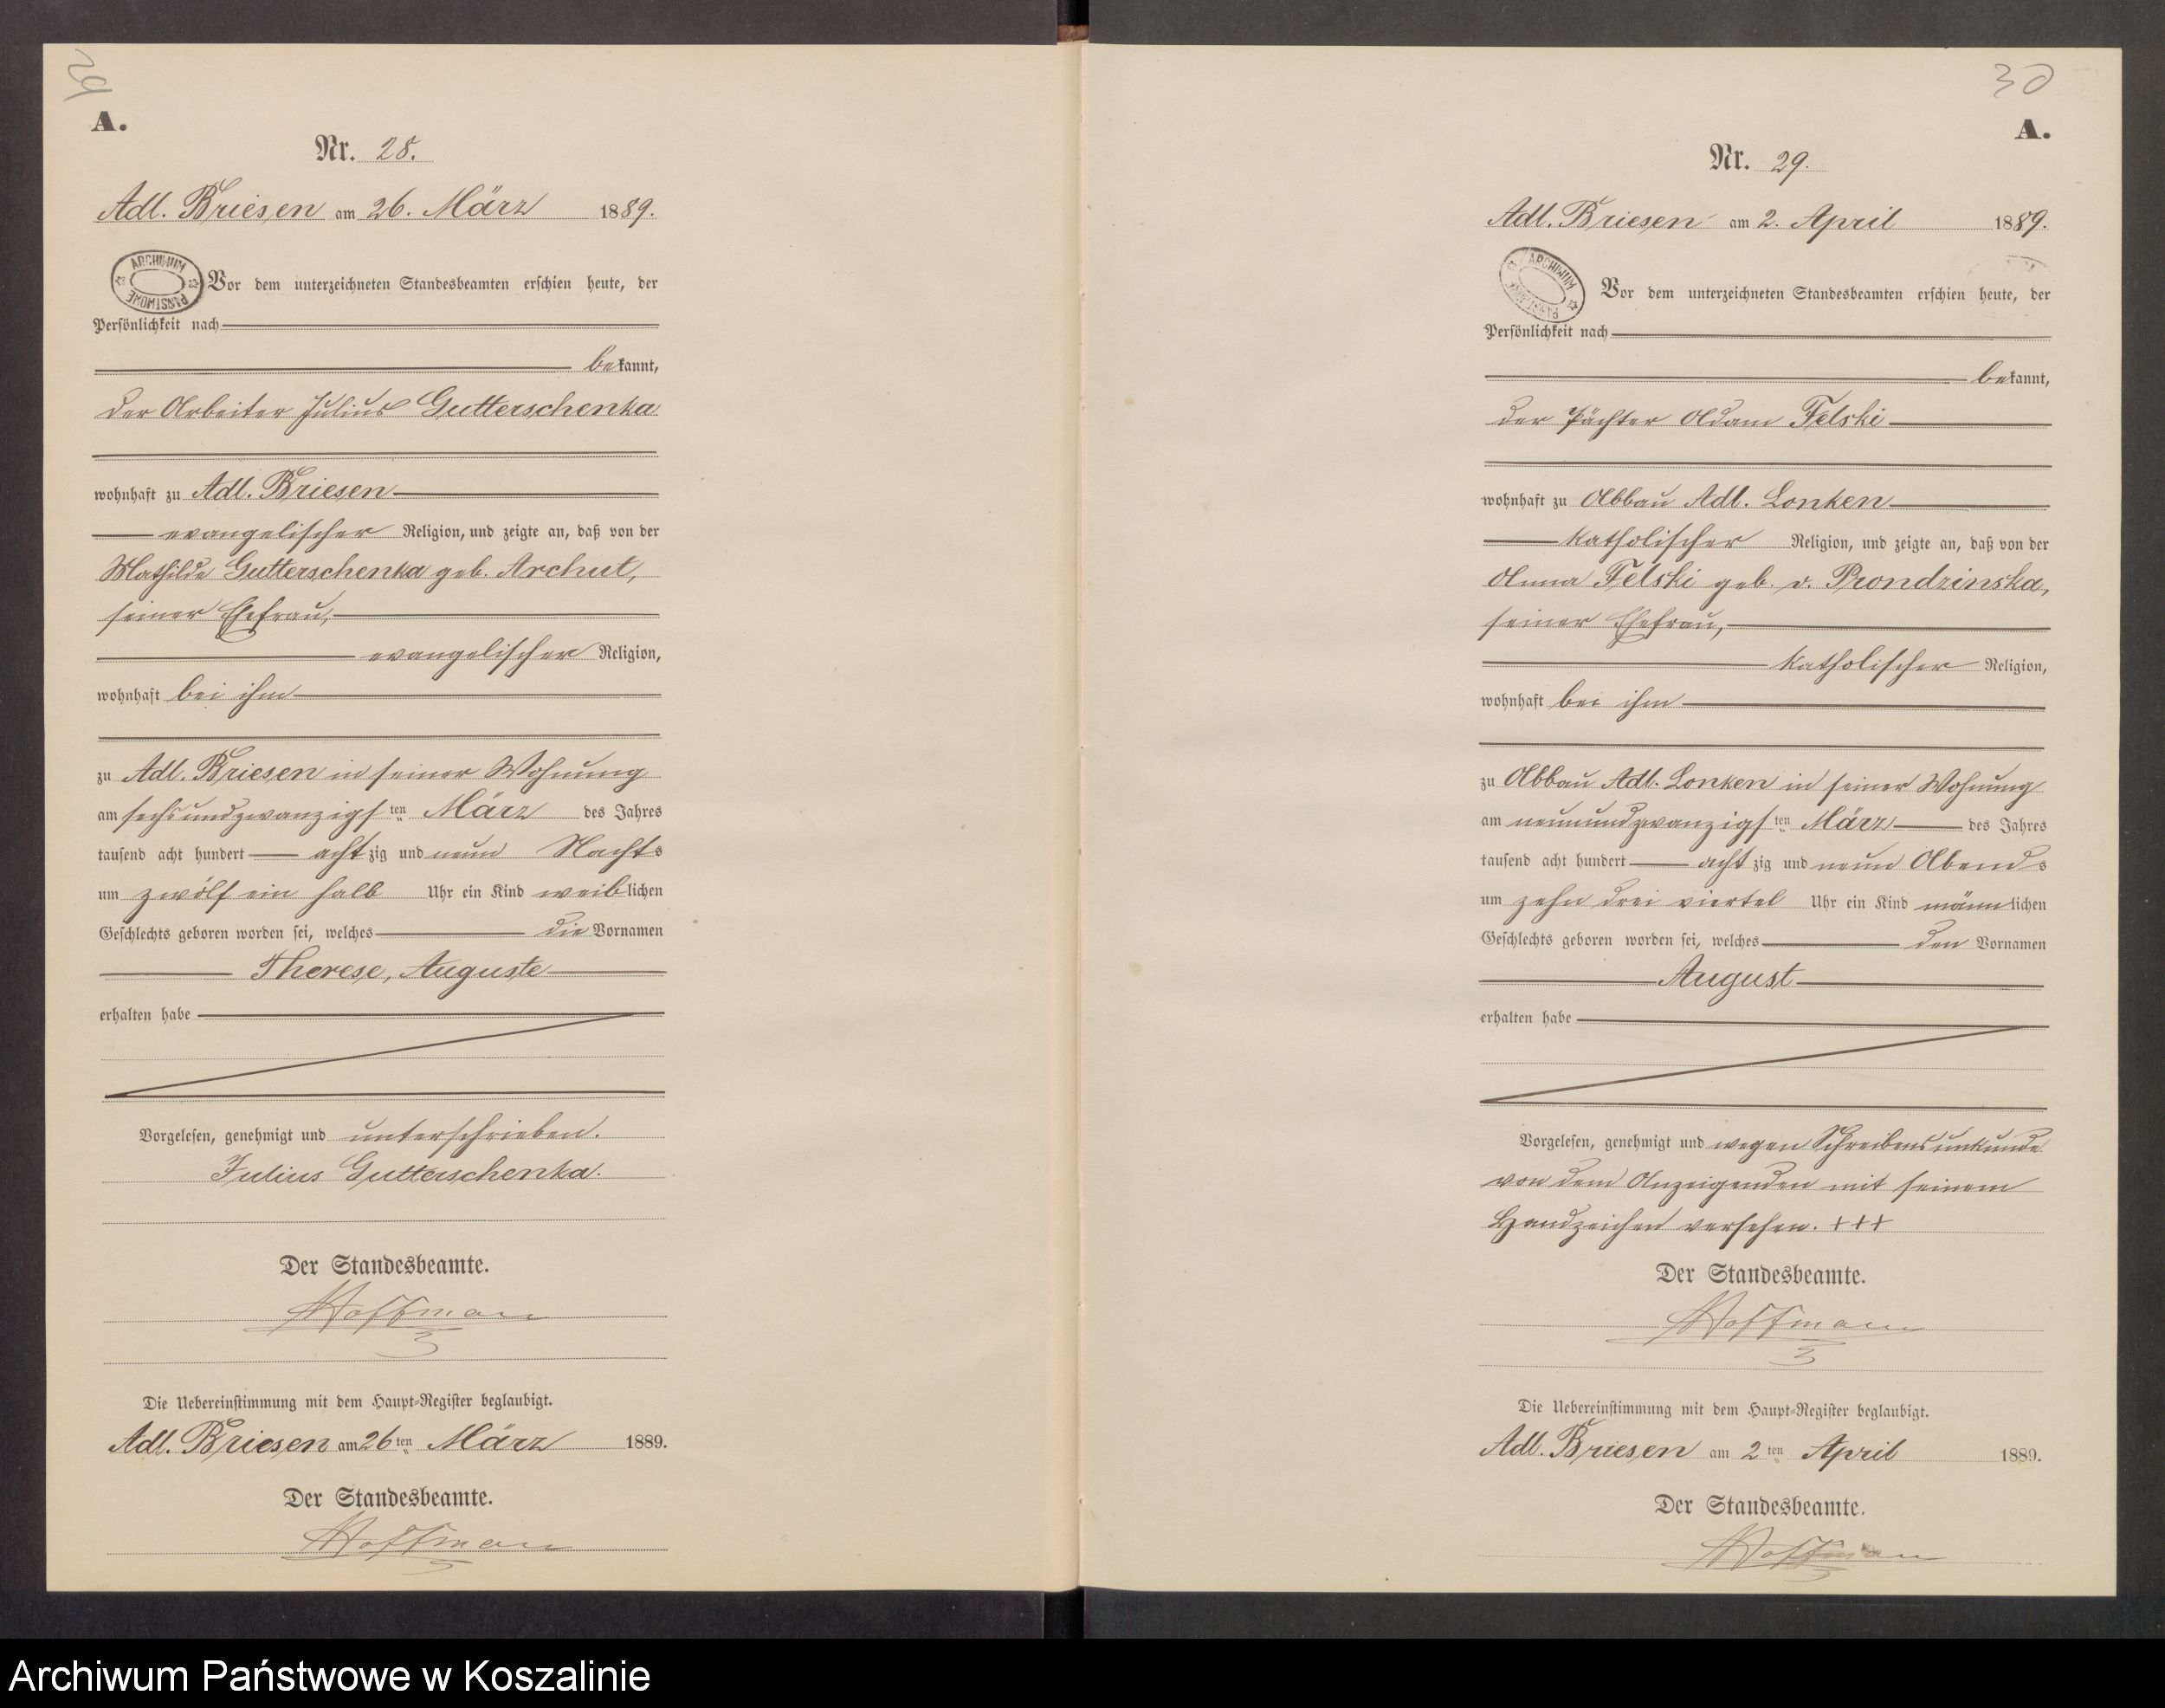 29
A.
Nr. 28.
Adl. Briesen am 26. März 1889.
ARCHIWUM PAŃSTWOWE
Vor dem unterzeichneten Standesbeamten erschien heute, der
Persönlichkeit nach
bekannt,
der Arbeiter Julius Gutterschenka
wohnhaft zu Adl. Briesen
evangelischer Religion, und zeigte an, daß von der
Mathilde Gutterschenka geb. Archut,
seiner Ehefrau,
evangelischer Religion,
wohnhaft bei ihm
zu Adl. Briesen in seiner Wohnung
am sechsundzwanzigsten März des Jahres
tausend acht hundert achtzig und neun Nachts
um zwölf ein halb Uhr ein Kind weiblichen
Geschlechts geboren worden sei, welches die Vornamen
Therese, Auguste
erhalten habe
Vorgelesen, genehmigt und unterschrieben.
Julius Gutterschenka.
Der Standesbeamte.
Hoffmann
Die Uebereinstimmung mit dem Haupt-Register beglaubigt.
Adl. Briesen am 26ten März 1889.
Der Standesbeamte.
Hoffmann
30
A.
Nr. 29.
Adl. Briesen am 2. April 1889.
ARCHIWUM PAŃSTWOWE
Vor dem unterzeichneten Standesbeamten erschien heute, der
Persönlichkeit nach
bekannt,
der Pächter Adam Felski
wohnhaft zu Abbau Adl. Lonken
katholischer Religion, und zeigte an, daß von der
Anna Felski geb. v. Prondzinska,
seiner Ehefrau,
katholischer Religion,
wohnhaft bei ihm
zu Abbau Adl. Lonken in seiner Wohnung
am neunundzwanzigsten März des Jahres
tausend acht hundert achtzig und neun Abends
um zehn drei viertel Uhr ein Kind männlichen
Geschlechts geboren worden sei, welches den Vornamen
August
erhalten habe
Vorgelesen, genehmigt und wegen Schreibensunkunde
von dem Anzeigenden mit seinem
Handzeichen versehen. +++
Der Standesbeamte.
Hoffmann
Die Uebereinstimmung mit dem Haupt-Register beglaubigt.
Adl. Briesen am 2ten April 1889.
Der Standesbeamte.
Hoffmann
Archiwum Państwowe w Koszalinie